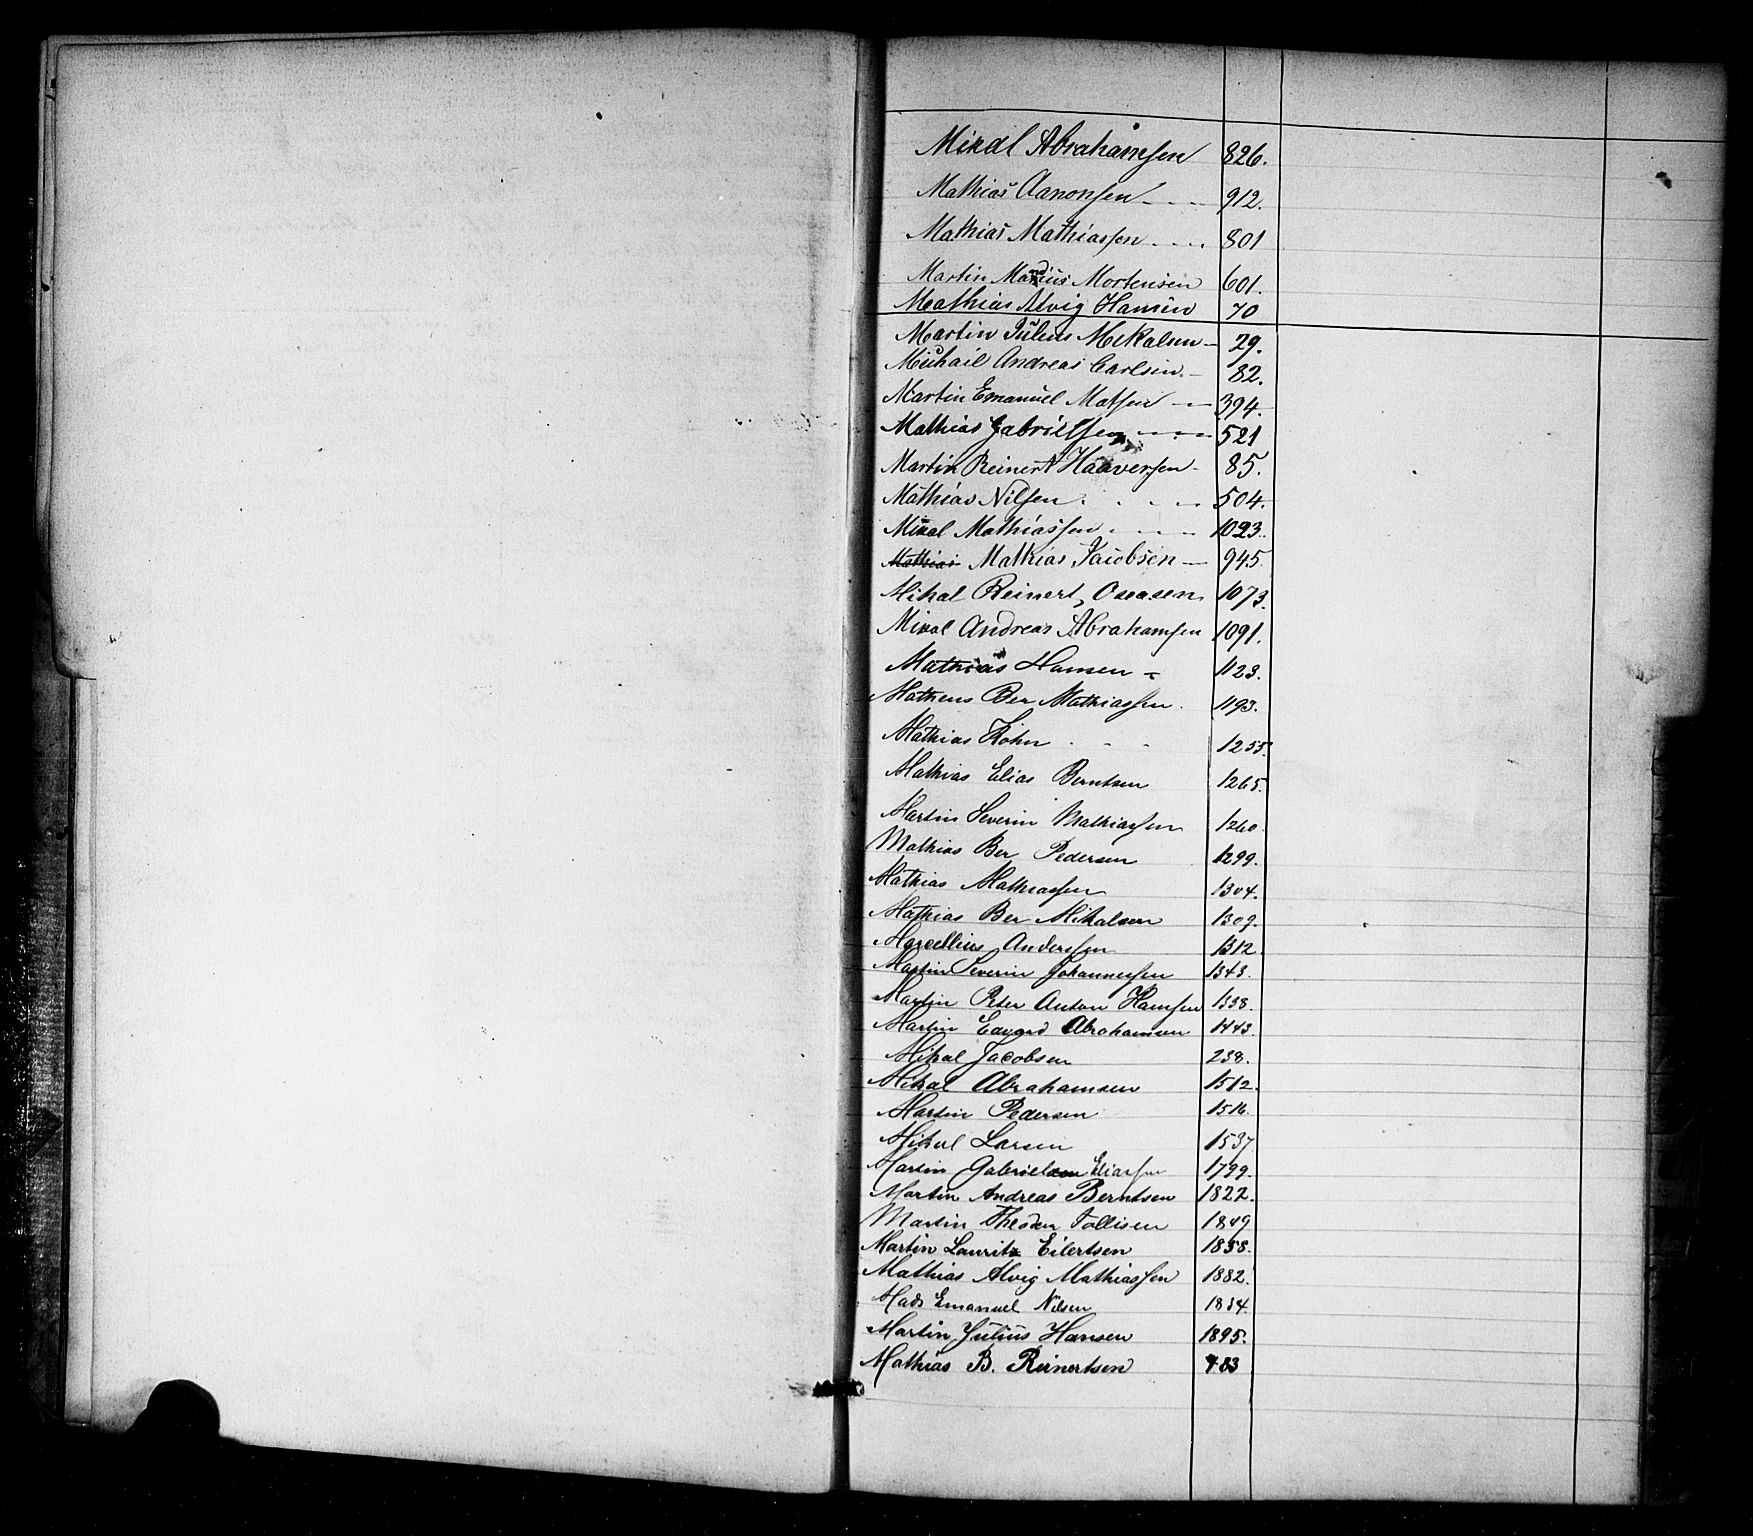 Mikal Abrahamsen 826.
Mathias Aanonsen 912.
Mathias Mathiassen 801
Martin Mandius Mortensen 601.
Mathias Alvig Hansen 70
Martin Julius Mekalsen 29.
Michail Andreas Carlsen 82.
Martin Emanuel Matsen 394.
Mathias Gabrielsen 521
Martin Reinert Haaversen 85.
Mathias Nilsen 504.
Mikal Mathiassen 1023.
Mathias Mathias Jacobsen 945.
Mikal Reinert Oseasen 1073.
Mikal Andreas Abrahamsen 1091.
Mathias Hansen 1123.
Matheus Ber Mathiassen 1193.
Mathias Kohn 1255.
Mathias Elias Berntsen 1265.
Martin Severin Mathiassen 1260.
Mathias Ber Pedersen 1299.
Mathias Mathiassen 1304.
Mathias Ber Mikalsen 1309.
Marcellius Anderssen 1312.
Martin Severin Johannessen 1343.
Martin Peter Anton Hanssen 1338.
Martin Edvard Abrahamsen 1443.
Mikal Jacobsen 238.
Mikal Abrahamsen 1512.
Martin Pedersen 1516.
Mikal Larsen 1537
Martin Gabrielsen Eliassen 1799.
Martin Andreas Berntsen 1822.
Martin Theodor Tollisen 1849
Martin Lauritz Eilertsen 1858.
Mathias Alvig Mathiassen 1882.
Mads Emanuel Nilsen 1834.
Martin Julius Hansen 1895.
Mathias B. Reinertsen 483